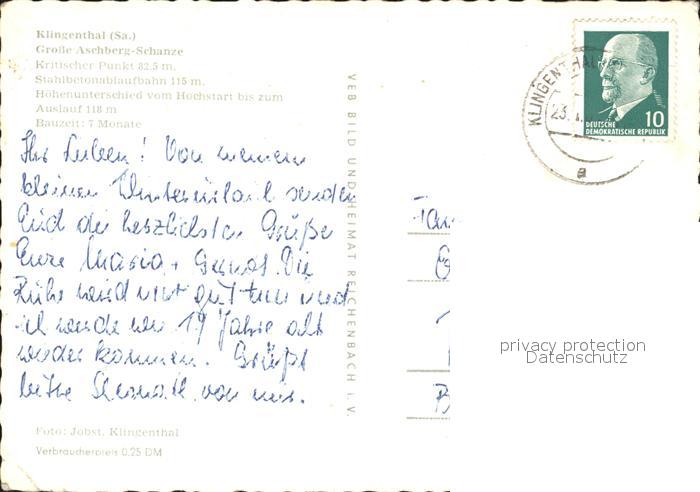 Klingenthal (Sa.)
Große Aschberg-Schanze
Kritischer Punkt 82,5 m.
Stahlbetonablaufbahn 115 m.
Höhenunterschied vom Hochstart bis zum
Auslauf 118 m
Bauzeit: 7 Monate
Ihr Lieben! Von meinem
kleinen Winterurlaub sendet
Euch die herzlichsten Grüße
Eure Maria + Die
Ruhe wird mir gut tun und
ich werde wie 19 Jahre alt
wieder kommen. Grüßt
bitte von mir.
Foto: Jobst, Klingenthal
Verbraucherpreis 0,25 DM
VEB BILD UND HEIMAT REICHENBACH i. V.
KLINGENTHAL
23.
a
10
DEUTSCHE
DEMOKRATISCHE REPUBLIK
privacy protection
Datenschutz